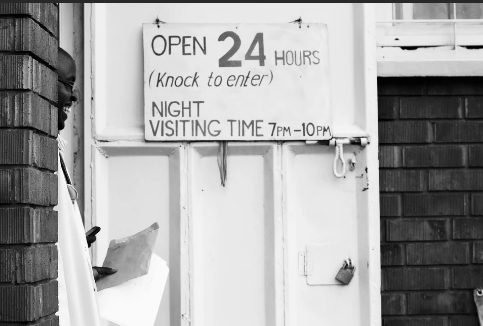 OPEN 24 HOURS
(Knock to enter)
NIGHT
VISITING TIME 7PM-10PM